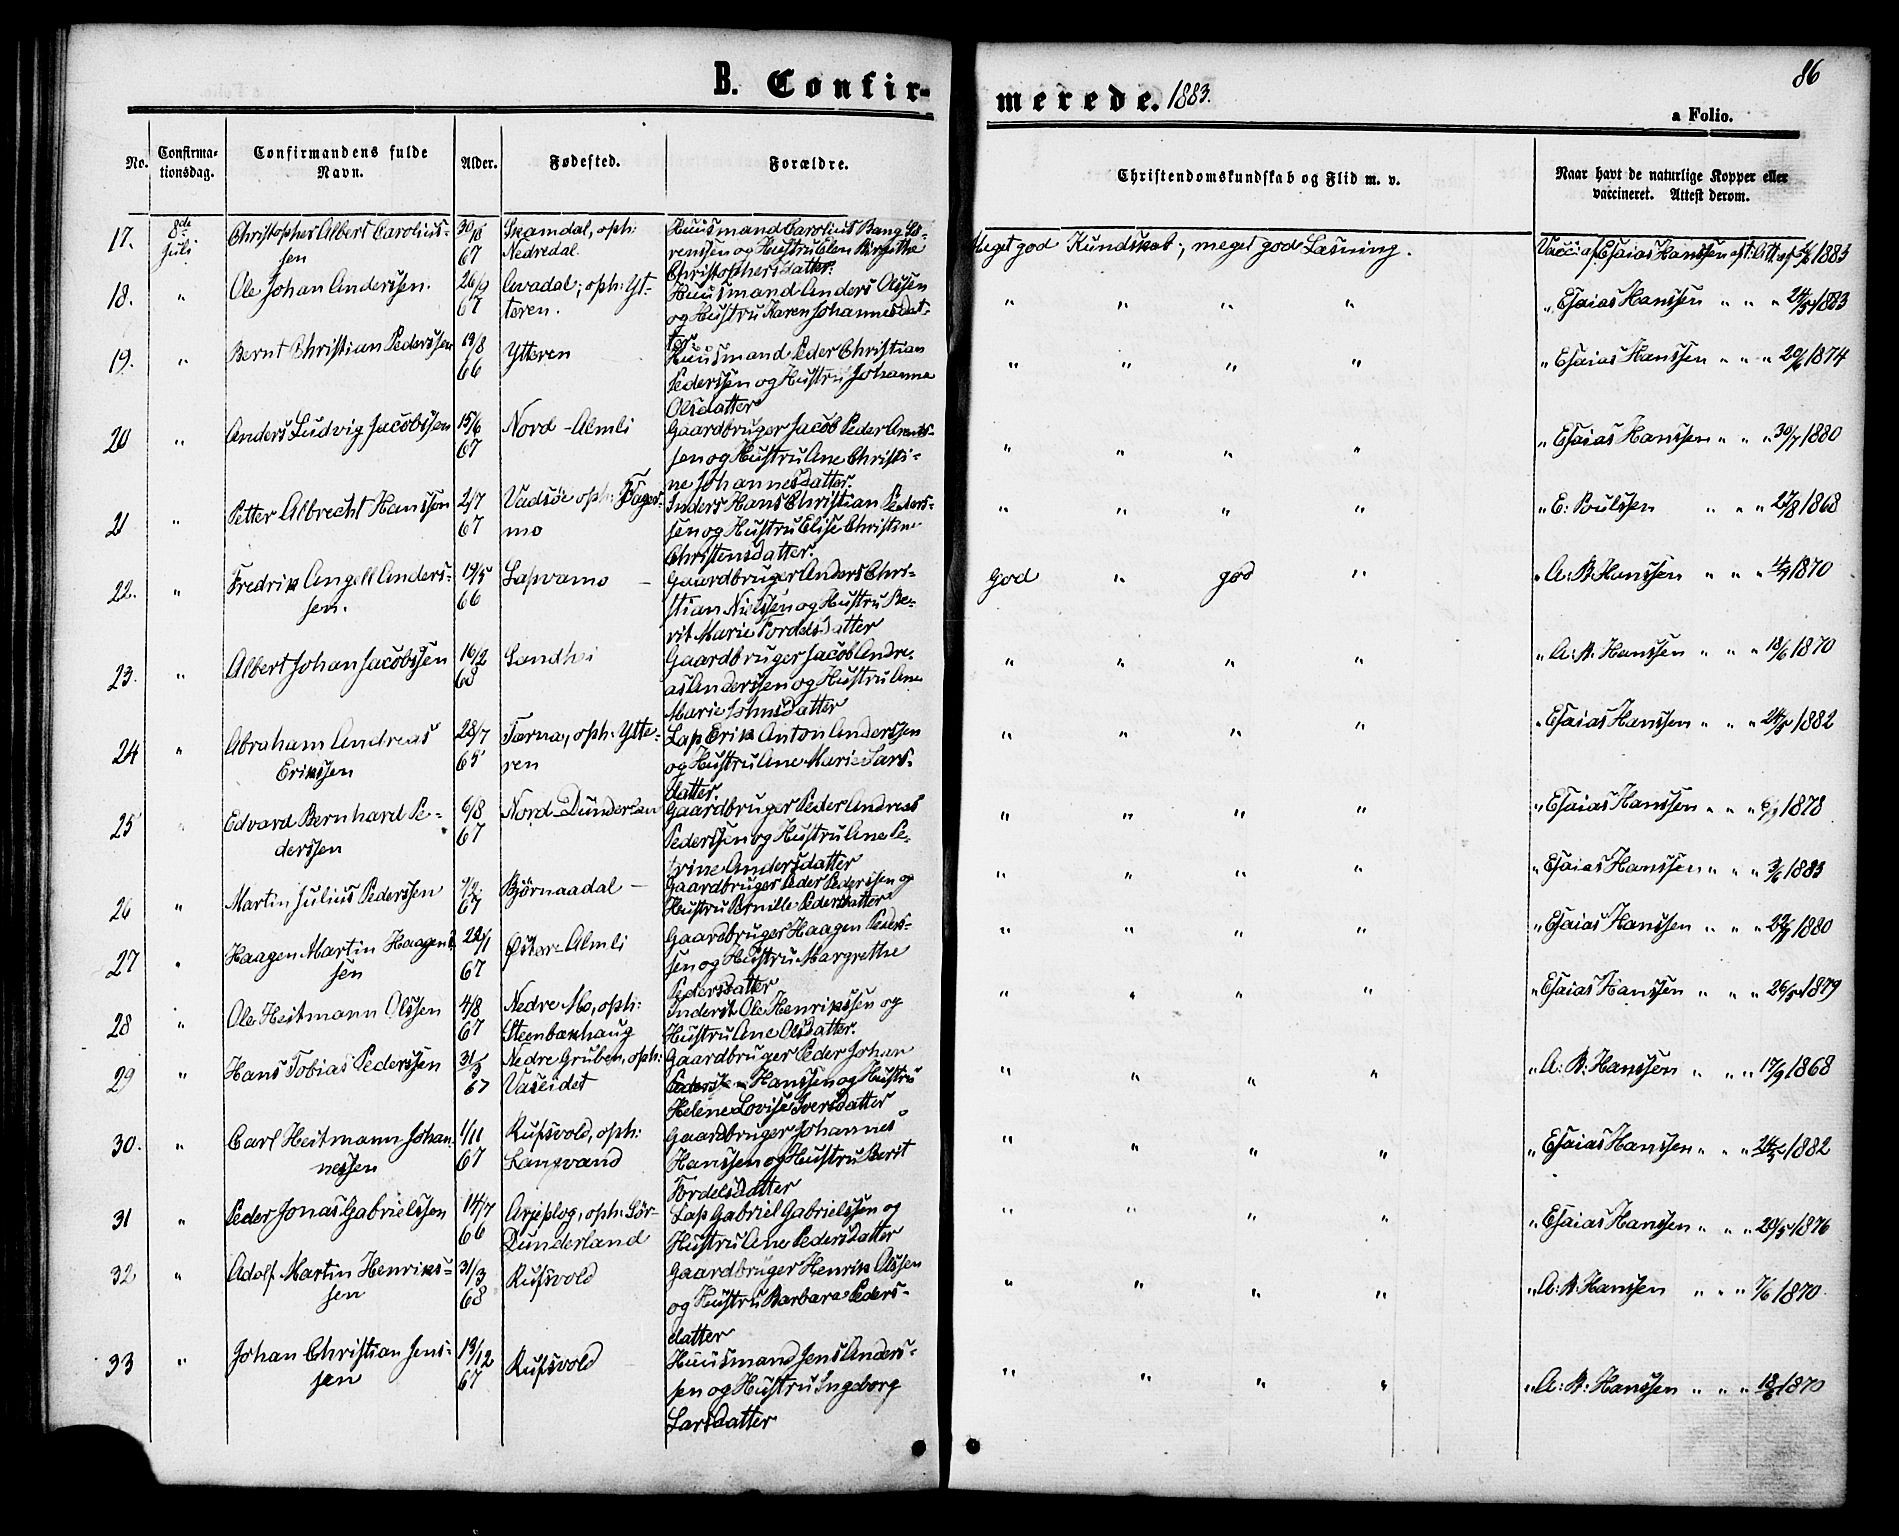 B. Confir-
merede. 1883.
86
a Folio.
No.
Confirma-
tionsdag.
Confirmandens fulde
Navn.
Alder.
Fødested.
Forældre.
Christendomskundskab og Flid m. v.
Naar havt de naturlige Kopper eller
vaccineret. Attest derom.
17. 8de Juli Christopher Albert Carolius- 67 Skamdal, oph: Huusmand Carolius Bang Sø-
sen Nedredal renssen og Hustru Elen Birgitte
Christophersdatter.
Meget god Kundskab; meget god Læsning. Vacci: af Esaias Hanssen 1883
18. " Ole Johan Anderssen. 26/9 67 Avadal; oph: Yt- Huusmand Anders Olssen
teren. og Hustru Karen Johannesdat-
ter
" " " " " Esaias Hanssen " " " 24/5 1883
19. " Bernt Christian Pederssen 19/8 66 Ytteren Huusmand Peder Christian
Pederssen og Hustru Johanne
Olsdatter
" " " " " Esaias Hanssen " " " 1874
20 " Anders Ludvig Jacobssen 15/6 67 Nord-Almli Gaardbruger Jacob Peder Arnts-
sen og Hustru Ane Christi-
ne Johannesdatter.
" " " " " Esaias Hanssen " " " 30/7 1880
21 " Petter Albrecht Hanssen 2/7 67 Vadsöe oph: Fager- Inders: Hans Christian Peders-
mo sen og Hustru Elise Christine
Christensdatter.
" " " " " E: Poulssen " " " 27/8 1868
22. " Fredrik Angell Anders- 19/5 66 Lapvamo Gaardbruger Anders Chri-
sen. stian Nielssen og Hustru Be-
rit Marie Fordelsdatter
God " god " " A: B: Hanssen " " " 1870
23. " Albert Johan Jacobssen 16/2 68 Sandhei Gaardbruger Jacob Andre-
as Anderssen og Hustru Ane
Marie Johnsdatter
" " " " " A: B: Hanssen " " " 18/6 1870
24 " Abraham Andreas 28/7 65 Tærna, oph: Ytte- Lap Erik Anton Anderssen
Erikssen ren og Hustru Ane Marie Lars-
datter.
" " " " " Esaias Hanssen " " " 24/5 1882
25 " Edvard Bernhard Pe- 6/8 67 Nord-Dunderlan Gaardbruger Peder Andreas
derssen Pederssen og Hustru Ane Pe-
trine Andersdatter
" " " " " Esaias Hanssen " " " 6/9 1878
26 " Martin Julius Pederssen 7/2 67 Bjørnaadal Gaardbruger Peder Pederssen og
Hustru Pernille Pedersdatter
" " " " " Esaias Hanssen " " " 3/6 1883
27 " Haagen Martin Haagens 67 Øster-Almli Gaardbruger Haagen Peders-
sen sen og Hustru Margrethe
Pedersdatter
" " " " " Esaias Hanssen " " " 1880
28 " Ole Heitmann Olssen 4/8 67 Nedre Mo, oph: Inderst Ole Henrikssen og
Steenbækhaug Hustru Ane Olsdatter.
" " " " " Esaias Hanssen " " " 26/5 1879
29 " Hans Tobias Pederssen 31/3 67 Nedre Gruben, oph: Gaardbruger Peder Johan
Vaseidet Hanssen og Hustru
Helene Lovise Iversdatter
" " " " " A: B: Hanssen " " " 17/9 1868
30. " Carl Heitmann Johan 1/11 67 Rufsvold, oph: Gaardbruger Johannes
nessen Langvand Hanssen og Hustru Berit
Fordelsdatter
" " " " " Esaias Hanssen " " " 24/5 1882
31 " Peder Jonas Gabrielssen 14/7 66 Arjeplog, oph: Sör- Lap Gabriel Gabrielssen og
Dunderland Hustru Ane Pedersdatter
" " " " " Esaias Hanssen " " " 20/5 1876
32 " Adolf Martin Henriks- 31/3 68 Rufsvold Gaardbruger Henrik Olssen
sen og Hustru Barbara Peders-
datter
" " " " " A: B: Hanssen " " " 7/6 1870.
33 " Johan Christian Jens- 13/12 67 Rufsvold Huusmand Jens Anders-
sen sen og Hustru Ingeborg
Larsdatter
" " " " " A: B: Hanssen " " " 18/6 1870